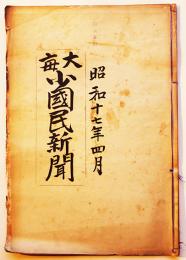 昭和十七年四月
大毎
小國民新聞